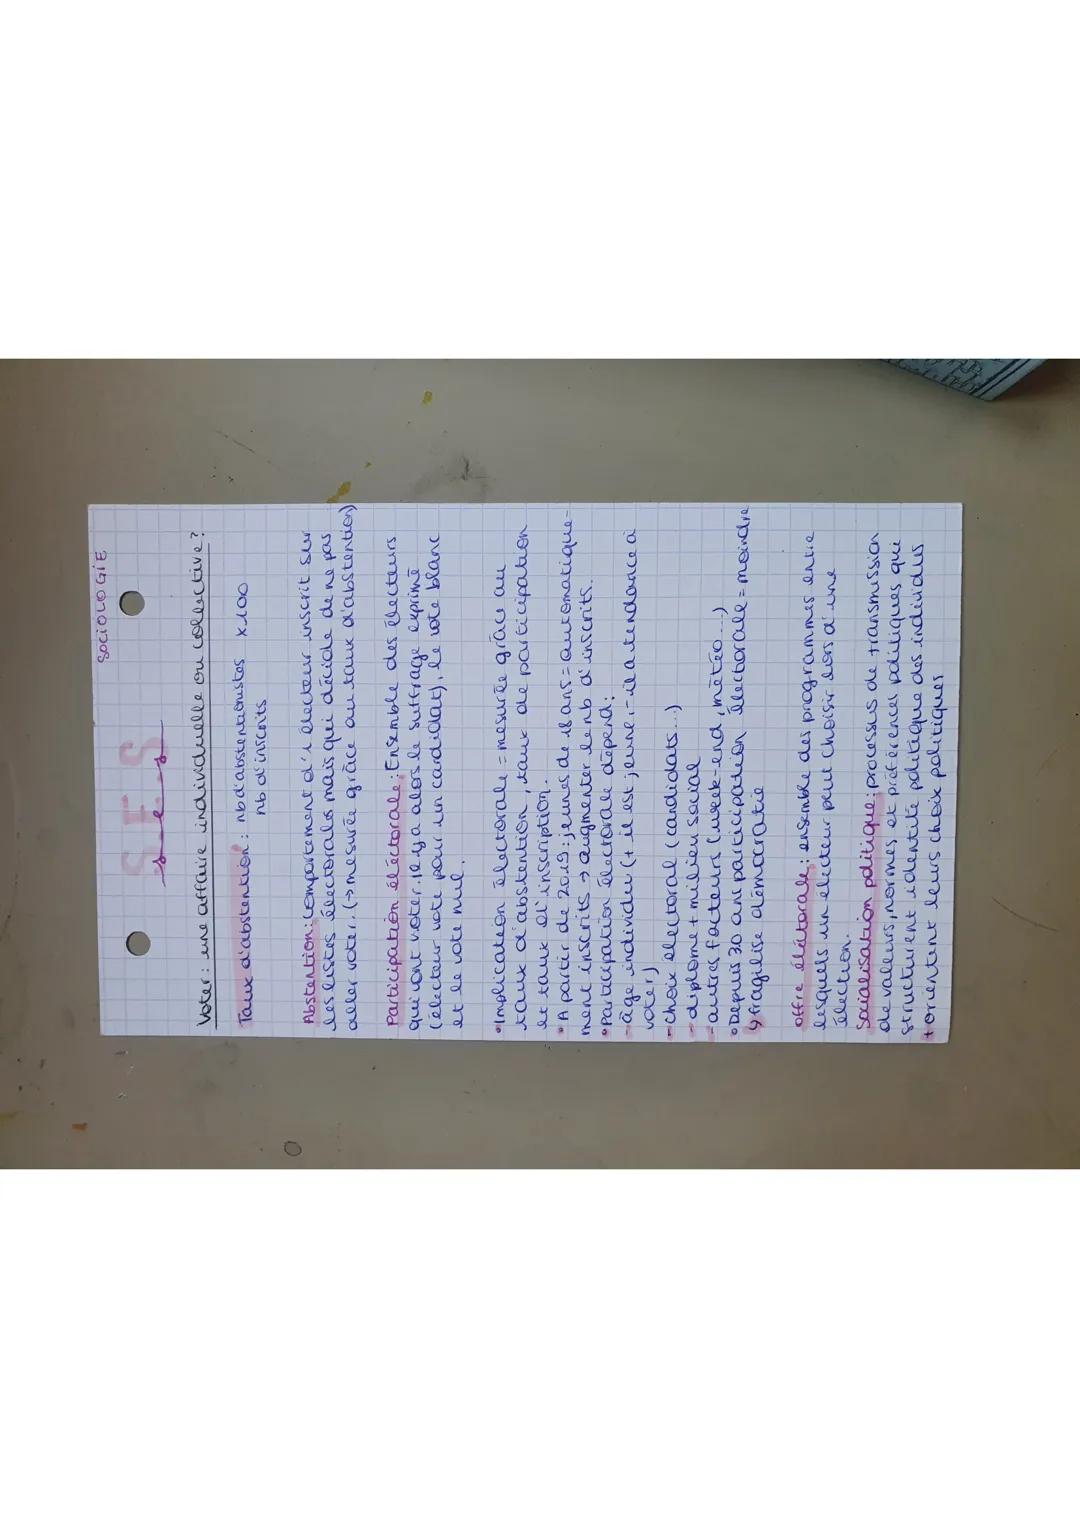 SOCIOLOGIE
SES
Voter : une affaire individuelle ou collective ?
Taux d'abstention : nb d'abstentionnistes x 100
nb d'inscrits
Abstention : comportement d'1 électeur inscrit sur
les listes électorales mais qui décide de ne pas
aller voter. (→ mesurée grâce au taux d'abstention)
Participation éléctorale : Ensemble des électeurs
qui vont voter. Il y a alors le suffrage exprimé
(électeur vote pour un candidat), le vote blanc
et le vote nul.
• Implication électorale = mesurée grâce au
taux d'abstention, taux de participation
et taux d'inscription.
• A partir de 2019 : jeunes de 18 ans = automatique-
ment inscrits → augmenter le nb d'inscrits.
• Participation électorale dépend :
- âge individu (+ il est jeune, - il a tendance à
voter)
- choix electoral (candidats...)
- diplome + milieu social
- autres facteurs (week-end, météo...)
• Depuis 30 ans participation électorale = moindre
↳ fragilise démocratie
offre éléctorale : ensemble des programmes entre
lesquels un electeur peut choisir lors d'une
élection.
Socialisation politique : processus de transmission
de valeurs, normes et préférences politiques qui
structurent identité politique des individus
+ orientent leurs choix politiques